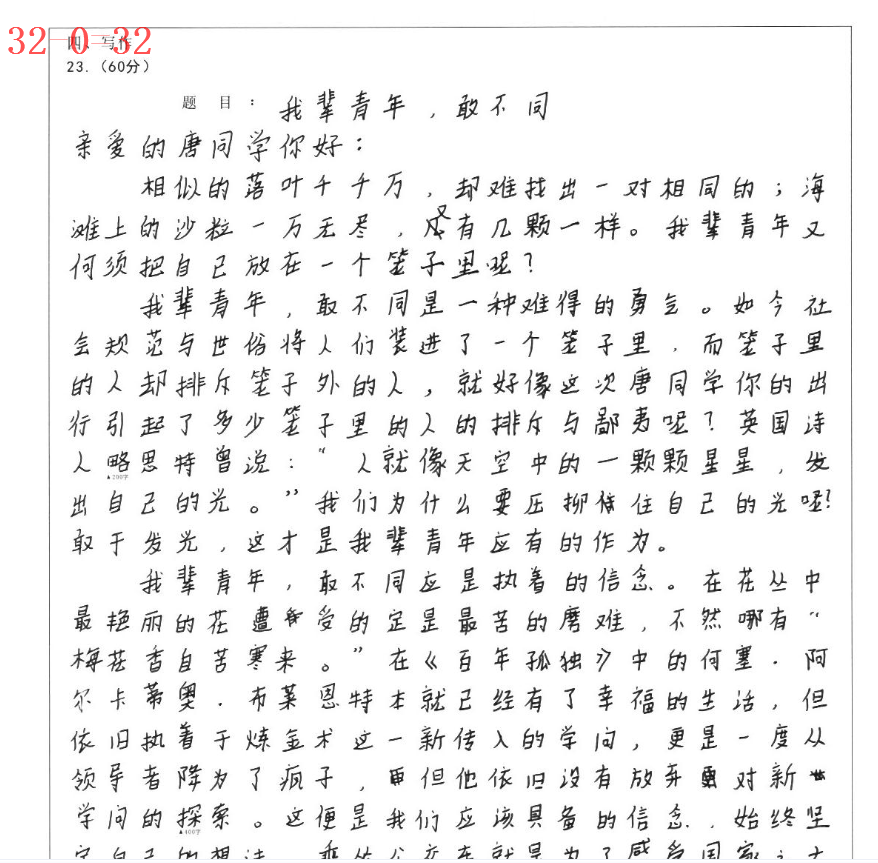 32 0 32
四、写作
23.（60分）
题 目： 我辈青年，敢不同
亲爱的唐同学你好：
相似的落叶千千万，却难找出一对相同的；海
滩上的沙粒一万无尽，又有几颗一样。我辈青年又
何须把自己放在一个笼子里呢？
我辈青年，敢不同是一种难得的勇气。如今社
会规范与世俗将人们装进了一个笼子里，而笼子里
的人却排斥笼子外的人，就好像这次唐同学你的出
行引起了多少笼子里的人的排斥与鄙夷呢？英国诗
人略思特曾说：“人就像天空中的一颗颗星星，发
▲200字
出自己的光。”我们为什么要压抑住自己的光呢？
敢于发光，这才是我辈青年应有的作为。
我辈青年，敢不同应是执着的信念。在花丛中
最艳丽的花遭受的定是最苦的磨难，不然哪有“
梅花香自苦寒来。”在《百年孤独》中的何塞·阿
尔卡蒂奥·布莱恩特本就已经有了幸福的生活，但
依旧执着于炼金术这一新传入的学问，更是一度从
领导者降为了疯子，但他依旧没有放弃对新
学问的探索。这便是我们应该具备的信念，始终坚
▲400字
定自己的想法